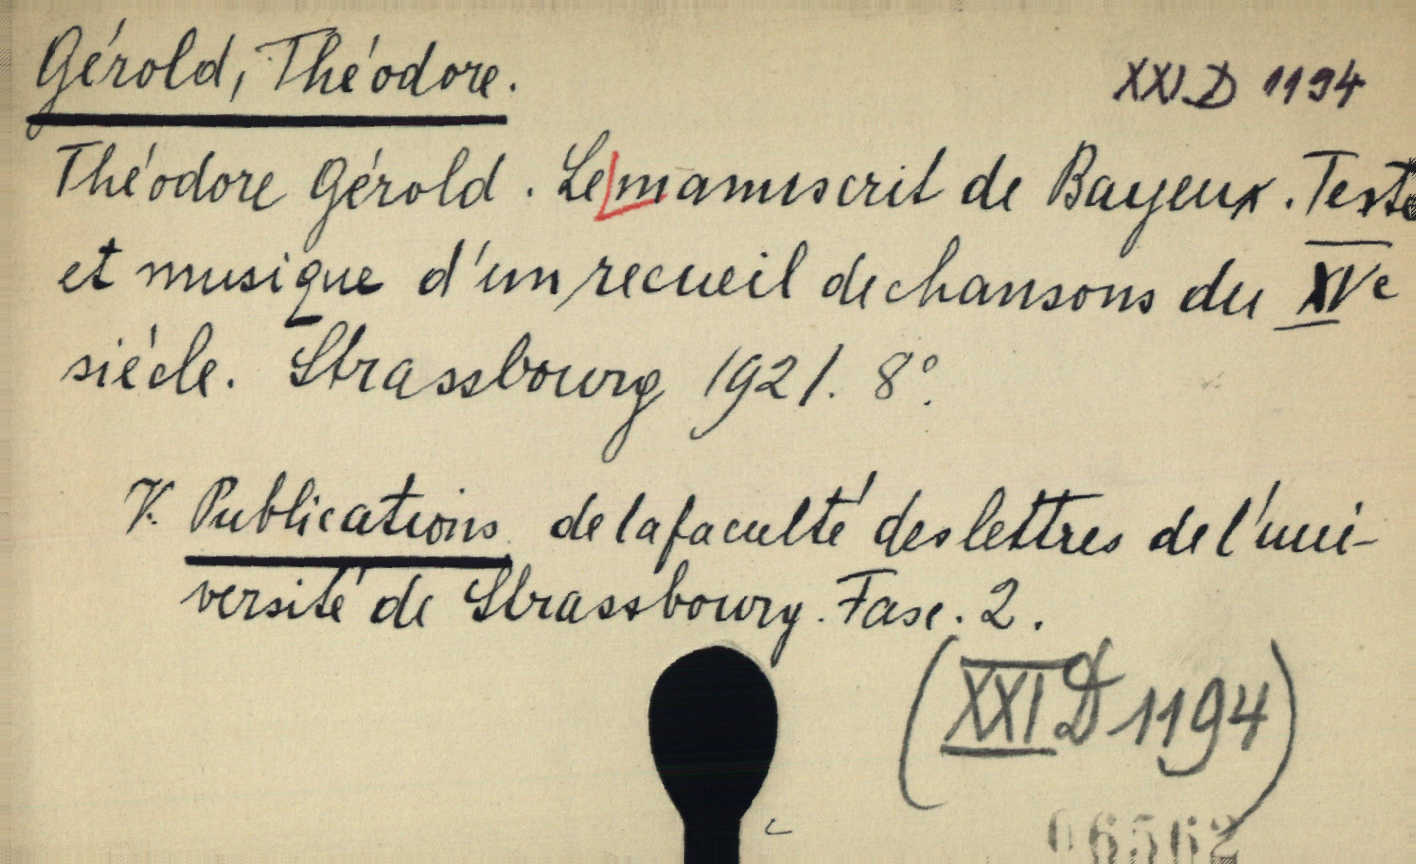 Gérold, Théodore.
XXI D 1194
Théodore Gérold. Le manuscrit de Bayeux. Texte
et musique d'un recueil de chansons du XVe
siécle. Strassbourg 1921. 8°.
V. Publications de la faculté des lettres de l'uni-
versité de Strassbourg. Fasc. 2.
(XXI D 1194)